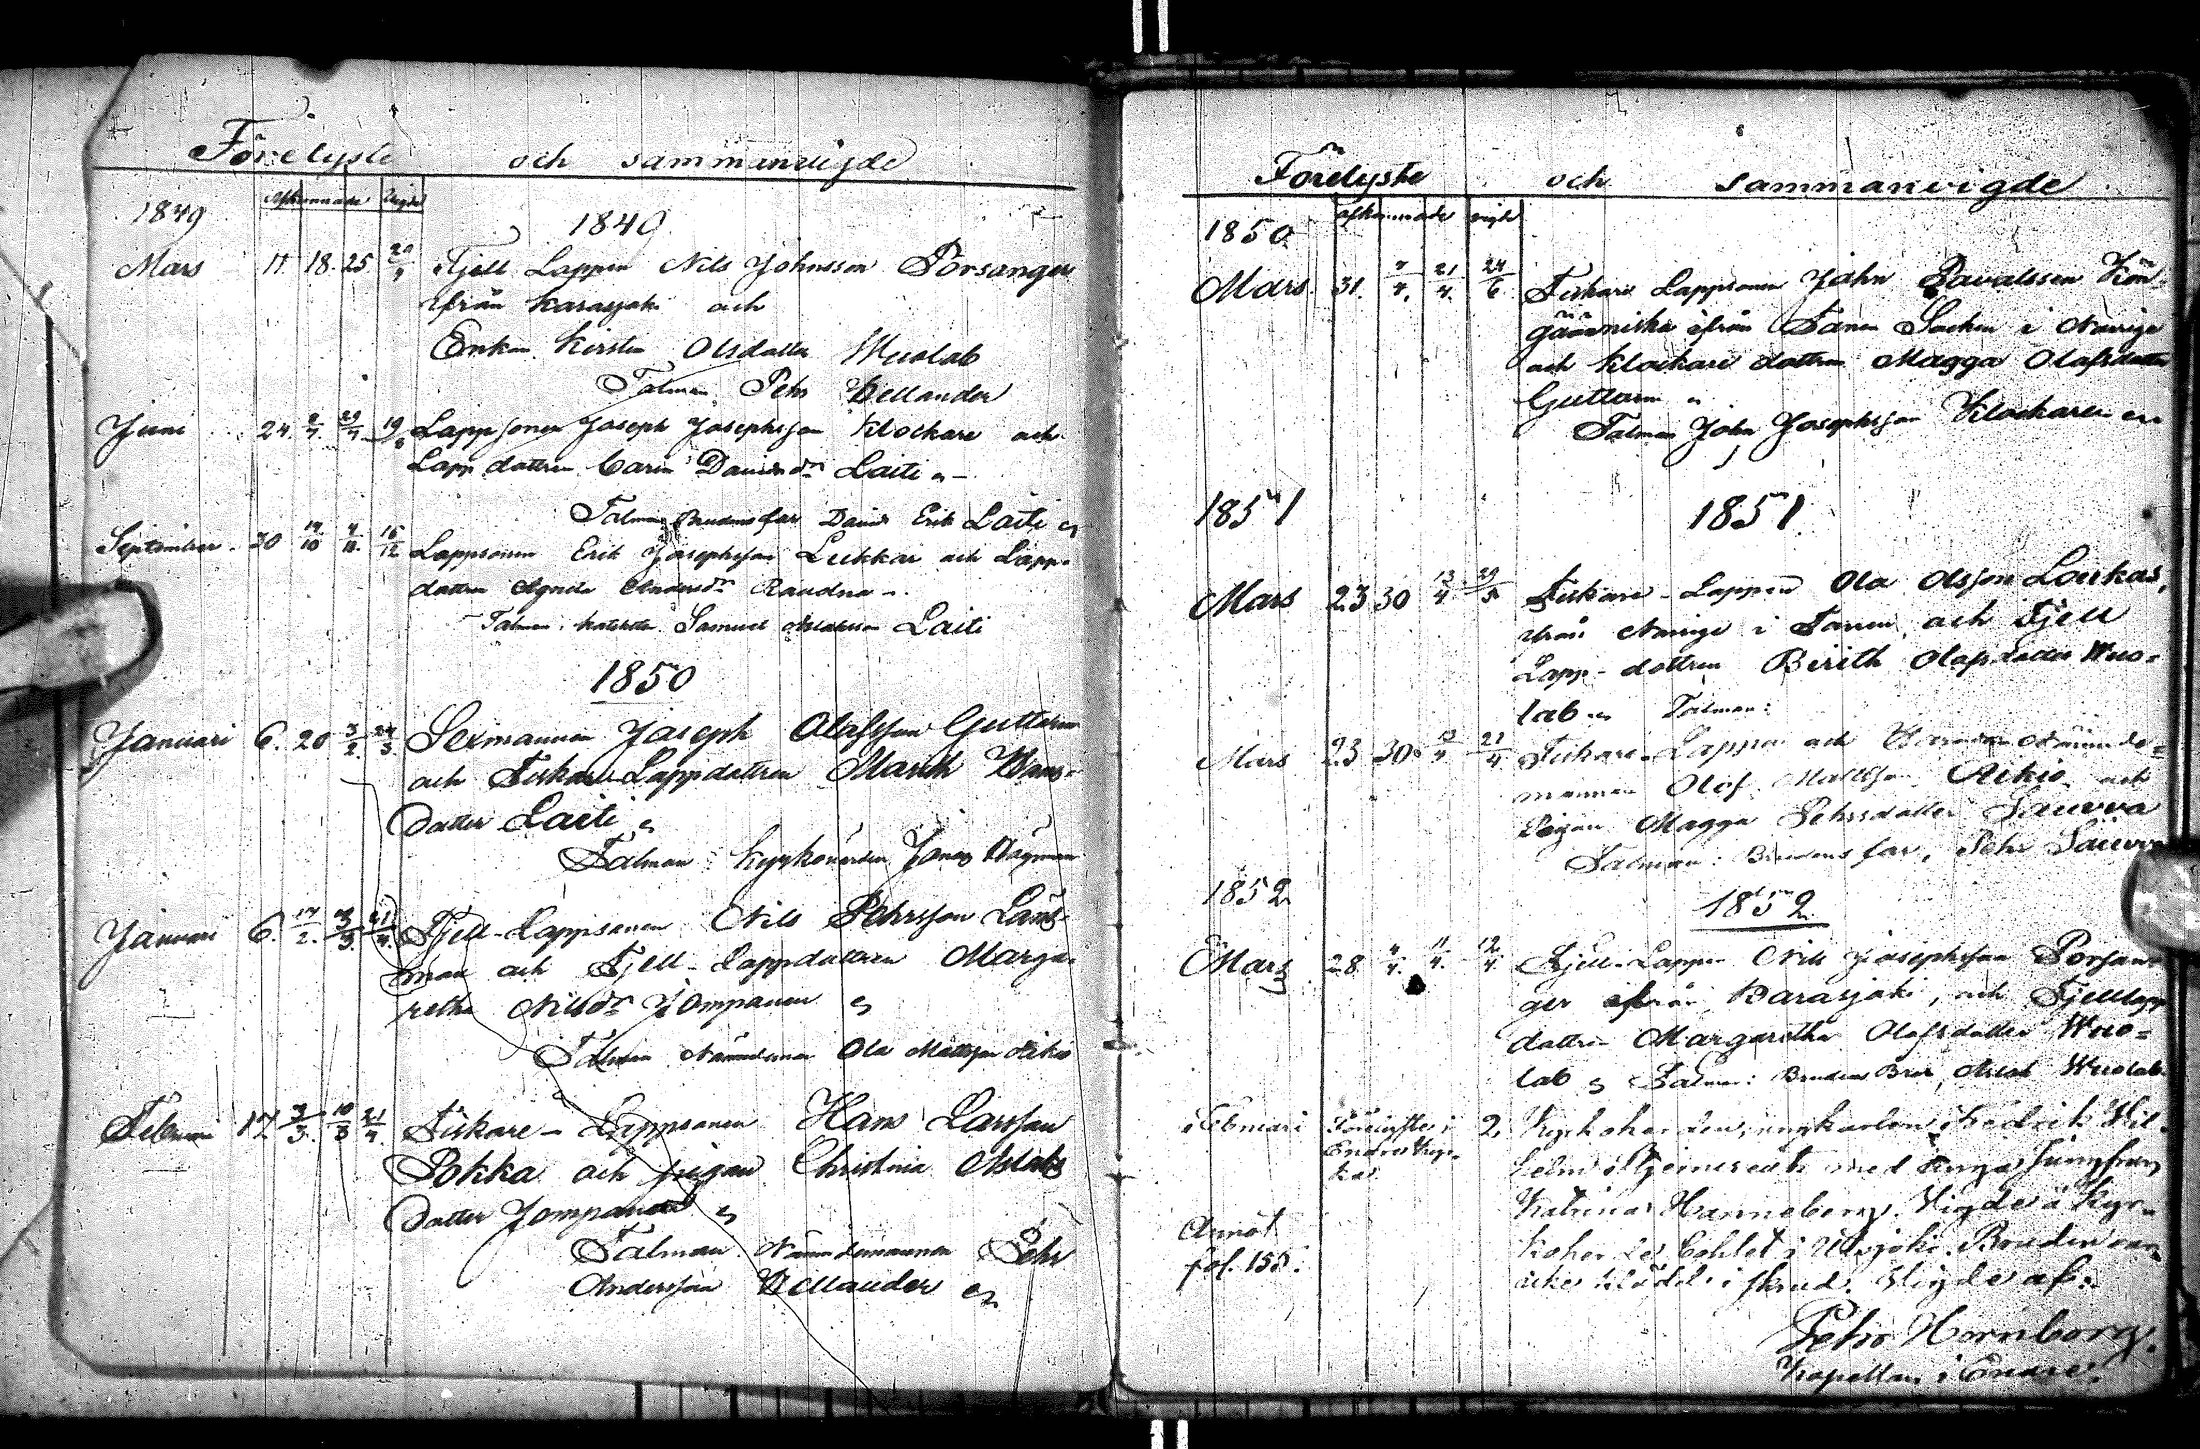 Förelyste och sammanvigde
Afkunnade Vigde
1849 1840
Mars 11. 18. 25 20/4 Fjell Lappen Nils Johnsson Porsanger
ifrån Karasjoki och
Enkan Kirstin Olsdatter Wuolab
Talman Pehr Hellander
Juni 24. 29/4 19 Lappsonen Joseph Josephsson Klockare och
Lapp dottren Carin Davidsdr Laiti
Talman Brudens far David Erik Laiti
September 30 14/10 4/11 16/12 Lappsonen Erik Josephsson Lukkar och Lapp-
dottren Agneta Andersdr Raudna
Talman. Samuel Laiti
1850
Januari 6. 20 3/2. 24/3 Sexmannen Joseph Olafsson Guttorm
och Fiskare Lappdottren Marith Hans-
Datter Laiti
Talman: Kyrkovärden Jonas Högman
Januari 6. 17/2. 3/3. 21/4. Fjell-Lappsonen Nils Pehrsson Läns-
man och Fjell-Lappdottren Marga-
retha Nilsdr Jompanen
Talman Nämndeman Ola Mattsson Aikio
Februari 17 3/3. 10/3 21/4 Fiskare-Lappsonen Hans Larsson
Pokka och pigan Christina Aslaks
Datter Jompanen
Talman Nämndemannen Pehr
Andersson Hellander
Förelyste och sammanvigde
afkunnade vigde
1850
Mars 31. 7/4. 21/4. 24/6 Fiskare Lappsonen John Pavalssen Kön-
gäämiska ifrån Tanen Socken i Norrige
och Klockare dottren Magga Olafsdatter
Guttorm
Talman John Josephsson Klockaren
1851 1851
Mars 23 30 13/4 Fiskare-Lappen Ola Olsson Loukas,
ifrån Norrige i Tanen, och Fjell
Lapp-dottren Berith Olafsdatter Wuo-
lab Talman:
Mars 23 30 13/4 21/4 Fiskare-Lappen och Nämnde-
mannen Olof Mattsson Aikio och
Pigan Magga Pehrsdatter Sauvva
Talman: Brudens far, Pehr Sauvva
1852 1852
Mars 28. 4/4. 11/4. 12/4 Fjell-Lappen Nils Josephsson Porsan-
ger ifrån Karasjoki, och Fjelllapp
dottren Margaretha Olafsdatter Wuo-
lab Talman: Brudens Bror, Aslak Wuolab
Februari Förelyste i 2. Kyrkoherden, ungkarlen Fredrik Wil-
helm Stjerncreutz med unga Jungfrun
Katrina Hanneberg. Vigde å Kyr-
Annot. koher de Bohlet i Utsjoki. Bruden var
fol. 155. icke klädd i skrud. Vigde af:
Petter Hornborg.
Kapellan i Enare.